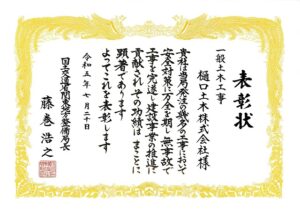 表彰状
一般土木工事
樋口土木株式会社様
貴社は当局発注の頭書の工事において
安全対策に万全を期し無事故で
工事を完遂し建設事業の推進に
貢献されその功績はまことに
顕著であります
よってこれを表彰します
令和五年七月二十日
国土交通省関東地方整備局長
藤巻浩之